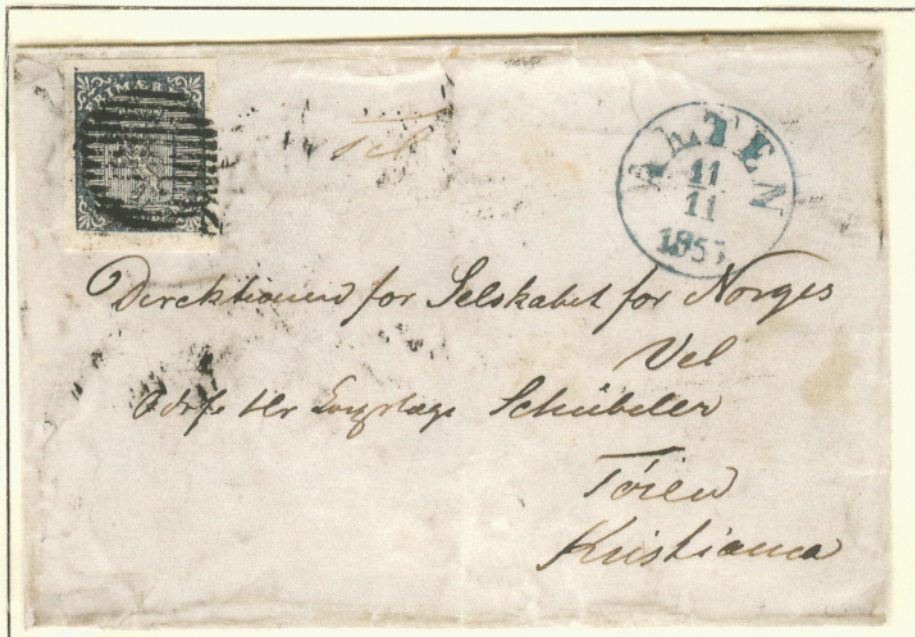 FRIMÆRKE
ALTEN
11
11
1855
Direktionen for Selskabet for Norges
Vel
Adr. Hr Schübeler
Tøien
Kristiania